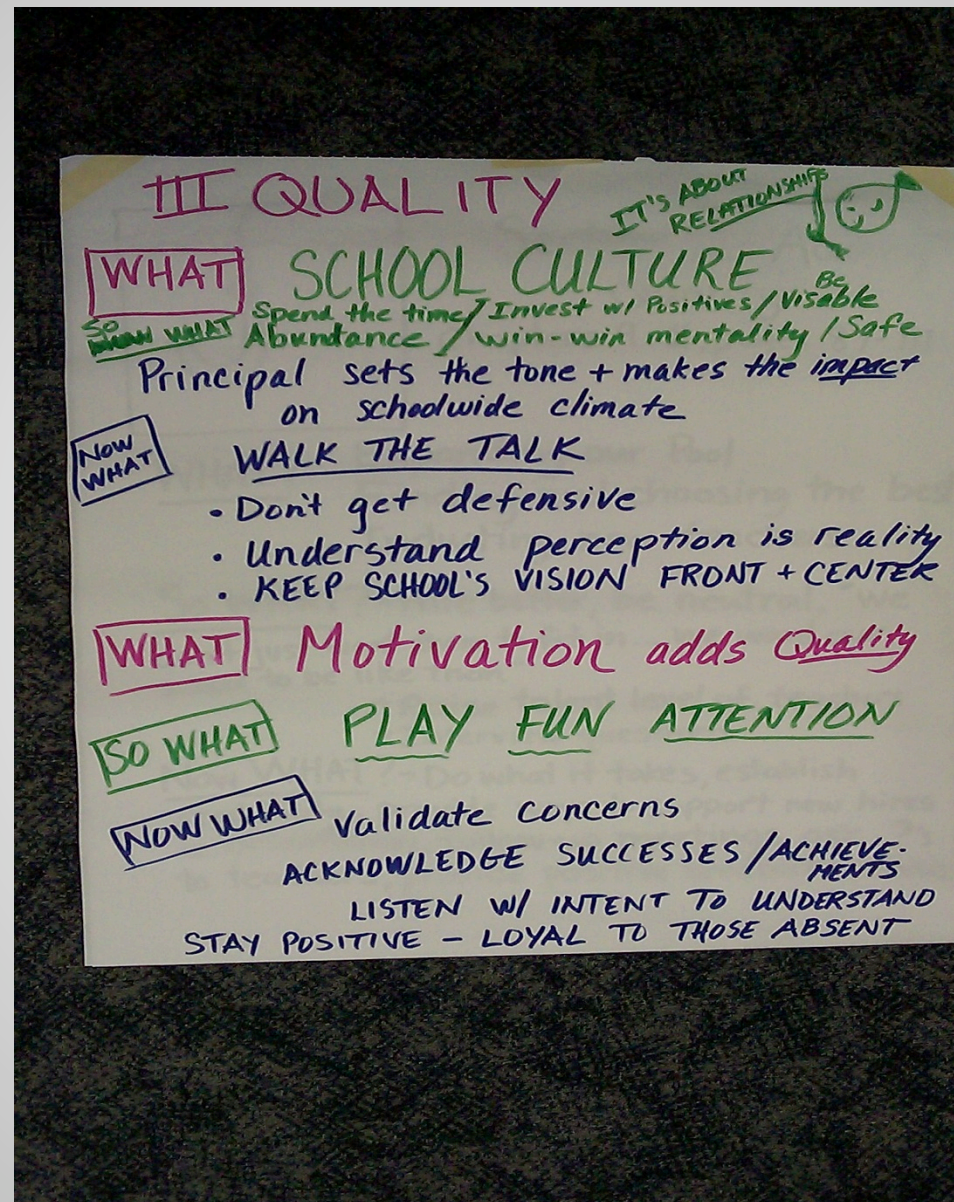 III QUALITY
IT'S ABOUT
RELATIONSHIPS
WHAT SCHOOL CULTURE
SO WHAT Spend the time / Invest w/ Positives / Be Visable
Abundance / win-win mentality / Safe
Principal sets the tone + makes the impact
on schoolwide climate
NOW WHAT WALK THE TALK
• Don't get defensive
• Understand perception is reality
• KEEP SCHOOL'S VISION FRONT + CENTER
WHAT Motivation adds Quality
SO WHAT PLAY FUN ATTENTION
NOW WHAT Validate Concerns
ACKNOWLEDGE SUCCESSES / ACHIEVE-
MENTS
LISTEN W/ INTENT TO UNDERSTAND
STAY POSITIVE – LOYAL TO THOSE ABSENT